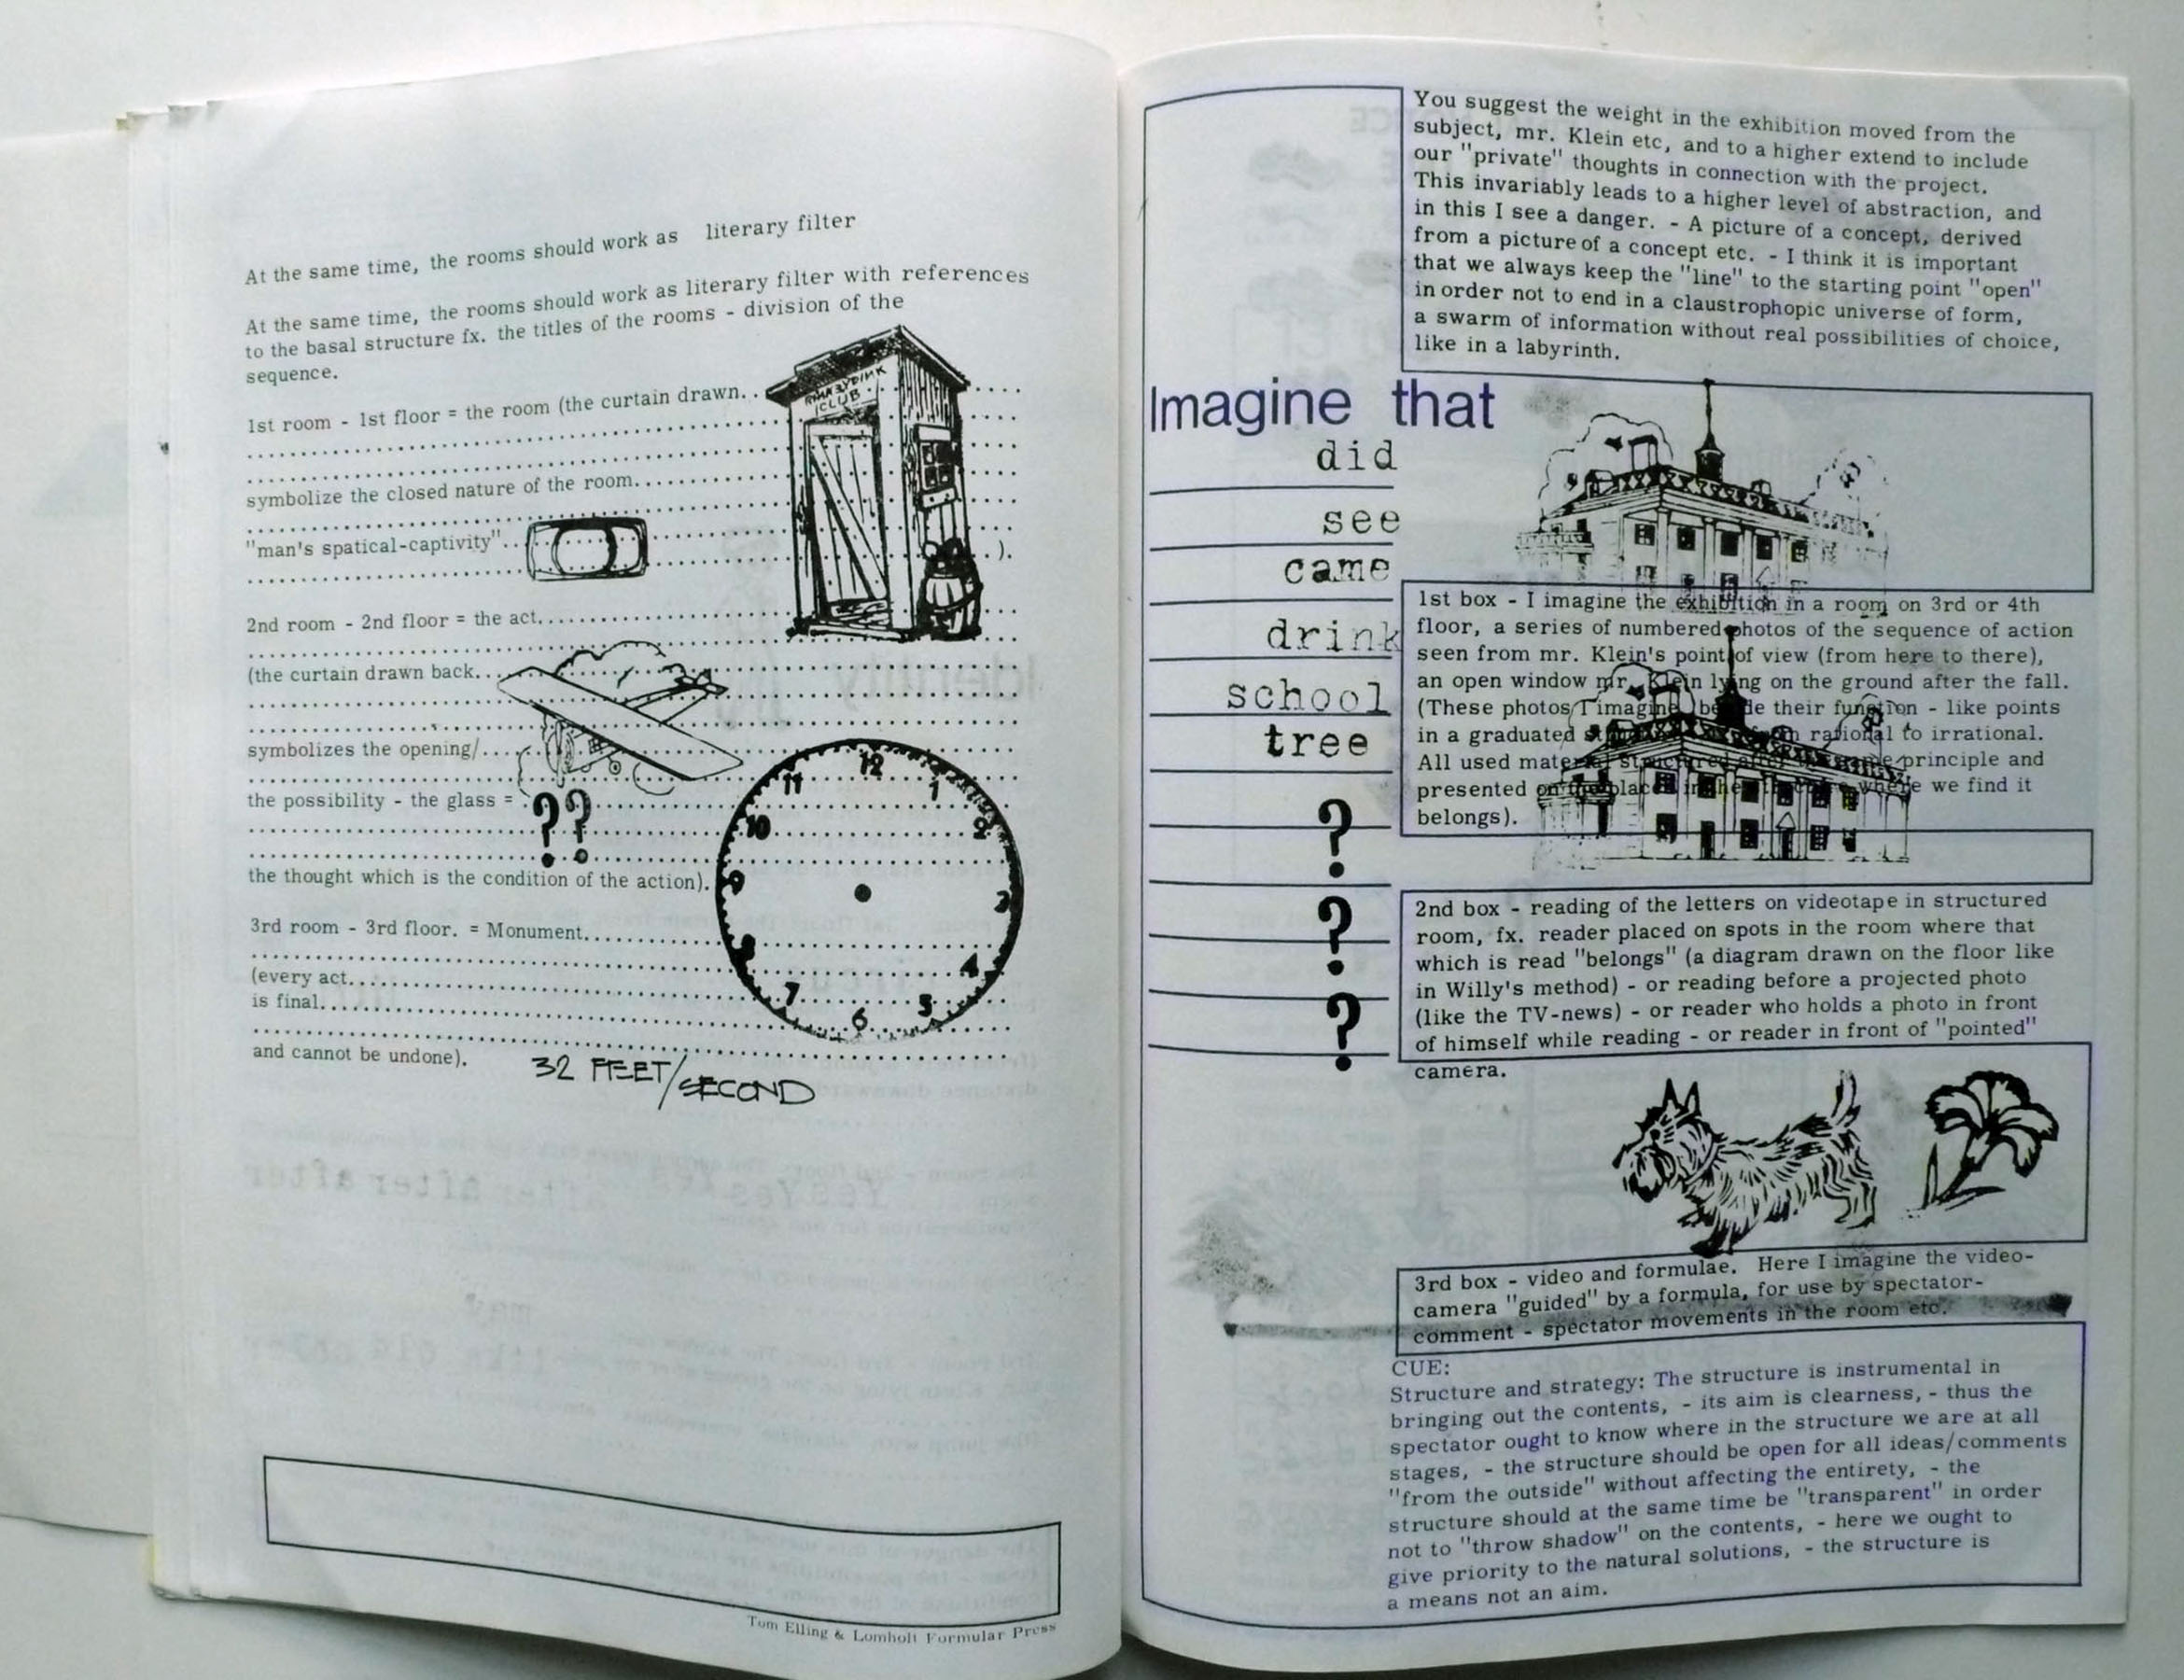 At the same time, the rooms should work as literary filter
At the same time, the rooms should work as literary filter with references
to the basal structure fx. the titles of the rooms - division of the
sequence.
1st room - 1st floor = the room (the curtain drawn. . . . . .
symbolize the closed nature of the room. . . . .
"man's spatical-captivity". . . . . ).
2nd room - 2nd floor = the act. . . . .
(the curtain drawn back. . . . .
symbolizes the opening/. . . . .
the possibility - the glass = . . . . .
??
the thought which is the condition of the action).
3rd room - 3rd floor. = Monument. . . . .
(every act. . . . .
is final. . . . .
and cannot be undone).
32 FEET/SECOND
CLUB
12
1
2
3
4
5
6
7
8
9
10
11
Tom Elling & Lomholt Formular Press
You suggest the weight in the exhibition moved from the
subject, mr. Klein etc, and to a higher extend to include
our "private" thoughts in connection with the project.
This invariably leads to a higher level of abstraction, and
in this I see a danger. - A picture of a concept, derived
from a picture of a concept etc. - I think it is important
that we always keep the "line" to the starting point "open"
in order not to end in a claustrophopic universe of form,
a swarm of information without real possibilities of choice,
like in a labyrinth.
Imagine that
did
see
came
drink
school
tree
?
?
?
1st box - I imagine the exhibition in a room on 3rd or 4th
floor, a series of numbered photos of the sequence of action
seen from mr. Klein's point of view (from here to there),
an open window mr. Klein lying on the ground after the fall.
(These photos I imagine beside their function - like points
in a graduated from rational to irrational.
All used material structured after the same principle and
presented on the place in the where we find it
belongs).
2nd box - reading of the letters on videotape in structured
room, fx. reader placed on spots in the room where that
which is read "belongs" (a diagram drawn on the floor like
in Willy's method) - or reading before a projected photo
(like the TV-news) - or reader who holds a photo in front
of himself while reading - or reader in front of "pointed"
camera.
3rd box - video and formulae. Here I imagine the video-
camera "guided" by a formula, for use by spectator-
comment - spectator movements in the room etc.
CUE:
Structure and strategy: The structure is instrumental in
bringing out the contents, - its aim is clearness, - thus the
spectator ought to know where in the structure we are at all
stages, - the structure should be open for all ideas/comments
"from the outside" without affecting the entirety, - the
structure should at the same time be "transparent" in order
not to "throw shadow" on the contents, - here we ought to
give priority to the natural solutions, - the structure is
a means not an aim.